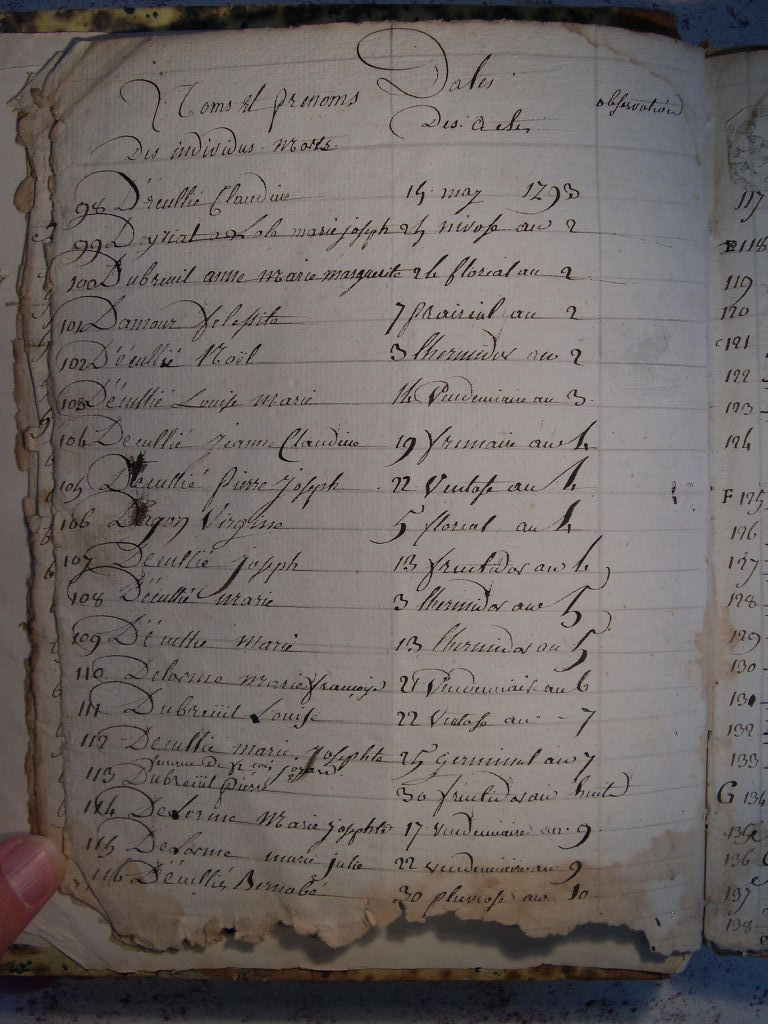 Noms et prenoms Dates observation
Des individus morts Des actes
98 Décullié Claudine 15 may 1793
99 Deyriat marie joseph 25 nivose an 2
100 Dubreuil anne Marie marguerite floreal an 2
101 Damour felessite 7 prairial an 2
102 Décullié Noël 3 thermidor an 2
103 Décullié Louise marie 14 Vendemiaire an 3
104 Decullié jeanne Claudine 19 frimaire an 4
105 Décullié Pierre joseph 22 Ventose an 4
106 Dagon Virgine 5 floreal an 4
107 Decullié joseph 13 fructidor an 4
108 Décullié marie 3 thermidor an 5
109 Décullie Marie 13 thermidor an 5
110 Delorme marie françoise 21 Vendemiair an 6
111 Dubreüil Louise 22 Ventose an 7
112 Decullie marie josephte 25 germinal an 7
113 Dubreüil Pierre 30 fructidor an huit
114 Delorme Marie josephte 17 vendemiaire an 9
115 Delorme marie julie 22 vendemiaire an 9
116 Déculliés Bernabé 30 pluviose an 10
117
E 118
119
120
121
122
123
124
F 125
126
127
128
129
130
131
132
133
G 134
135
136
137
138